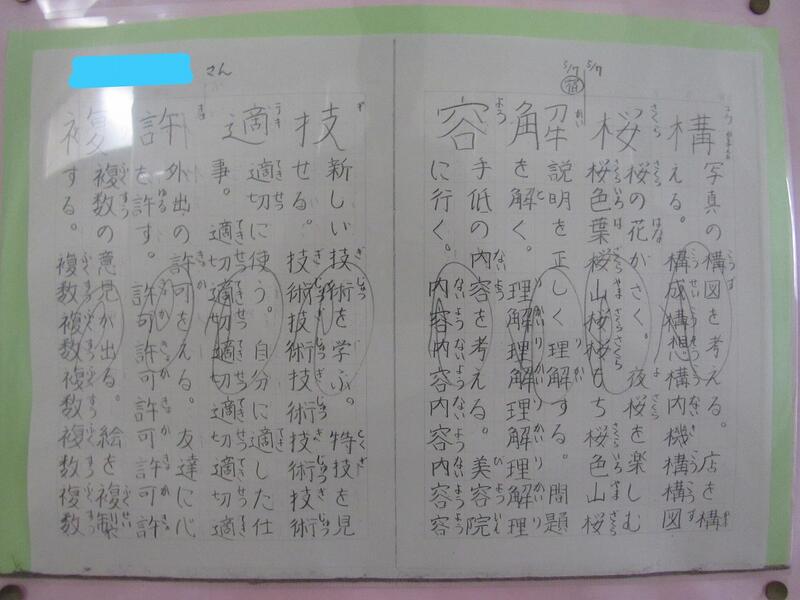 5/7 5/7
宿
構
写真の構図を考える。店を構
える。構成構想構内機構構図
桜
桜の花がさく。夜桜を楽しむ
桜色葉桜山桜桜もち桜色山桜
解
説明を正しく理解する。問題
を解く。理解理解理解理解理
容
手低の内容を考える。美容院
に行く。内容内容内容内容容
さん
技
新しい技術を学ぶ。特技を見
せる。技術技術技術技術技術
適
適切に使う。自分に適した仕
事。適切適切適切適切適切適
許
外出の許可をえる。友達に心
を許す。許可許可許可許可許
複
複数の意見が出る。絵を複製
する。複数複数複数複数複数